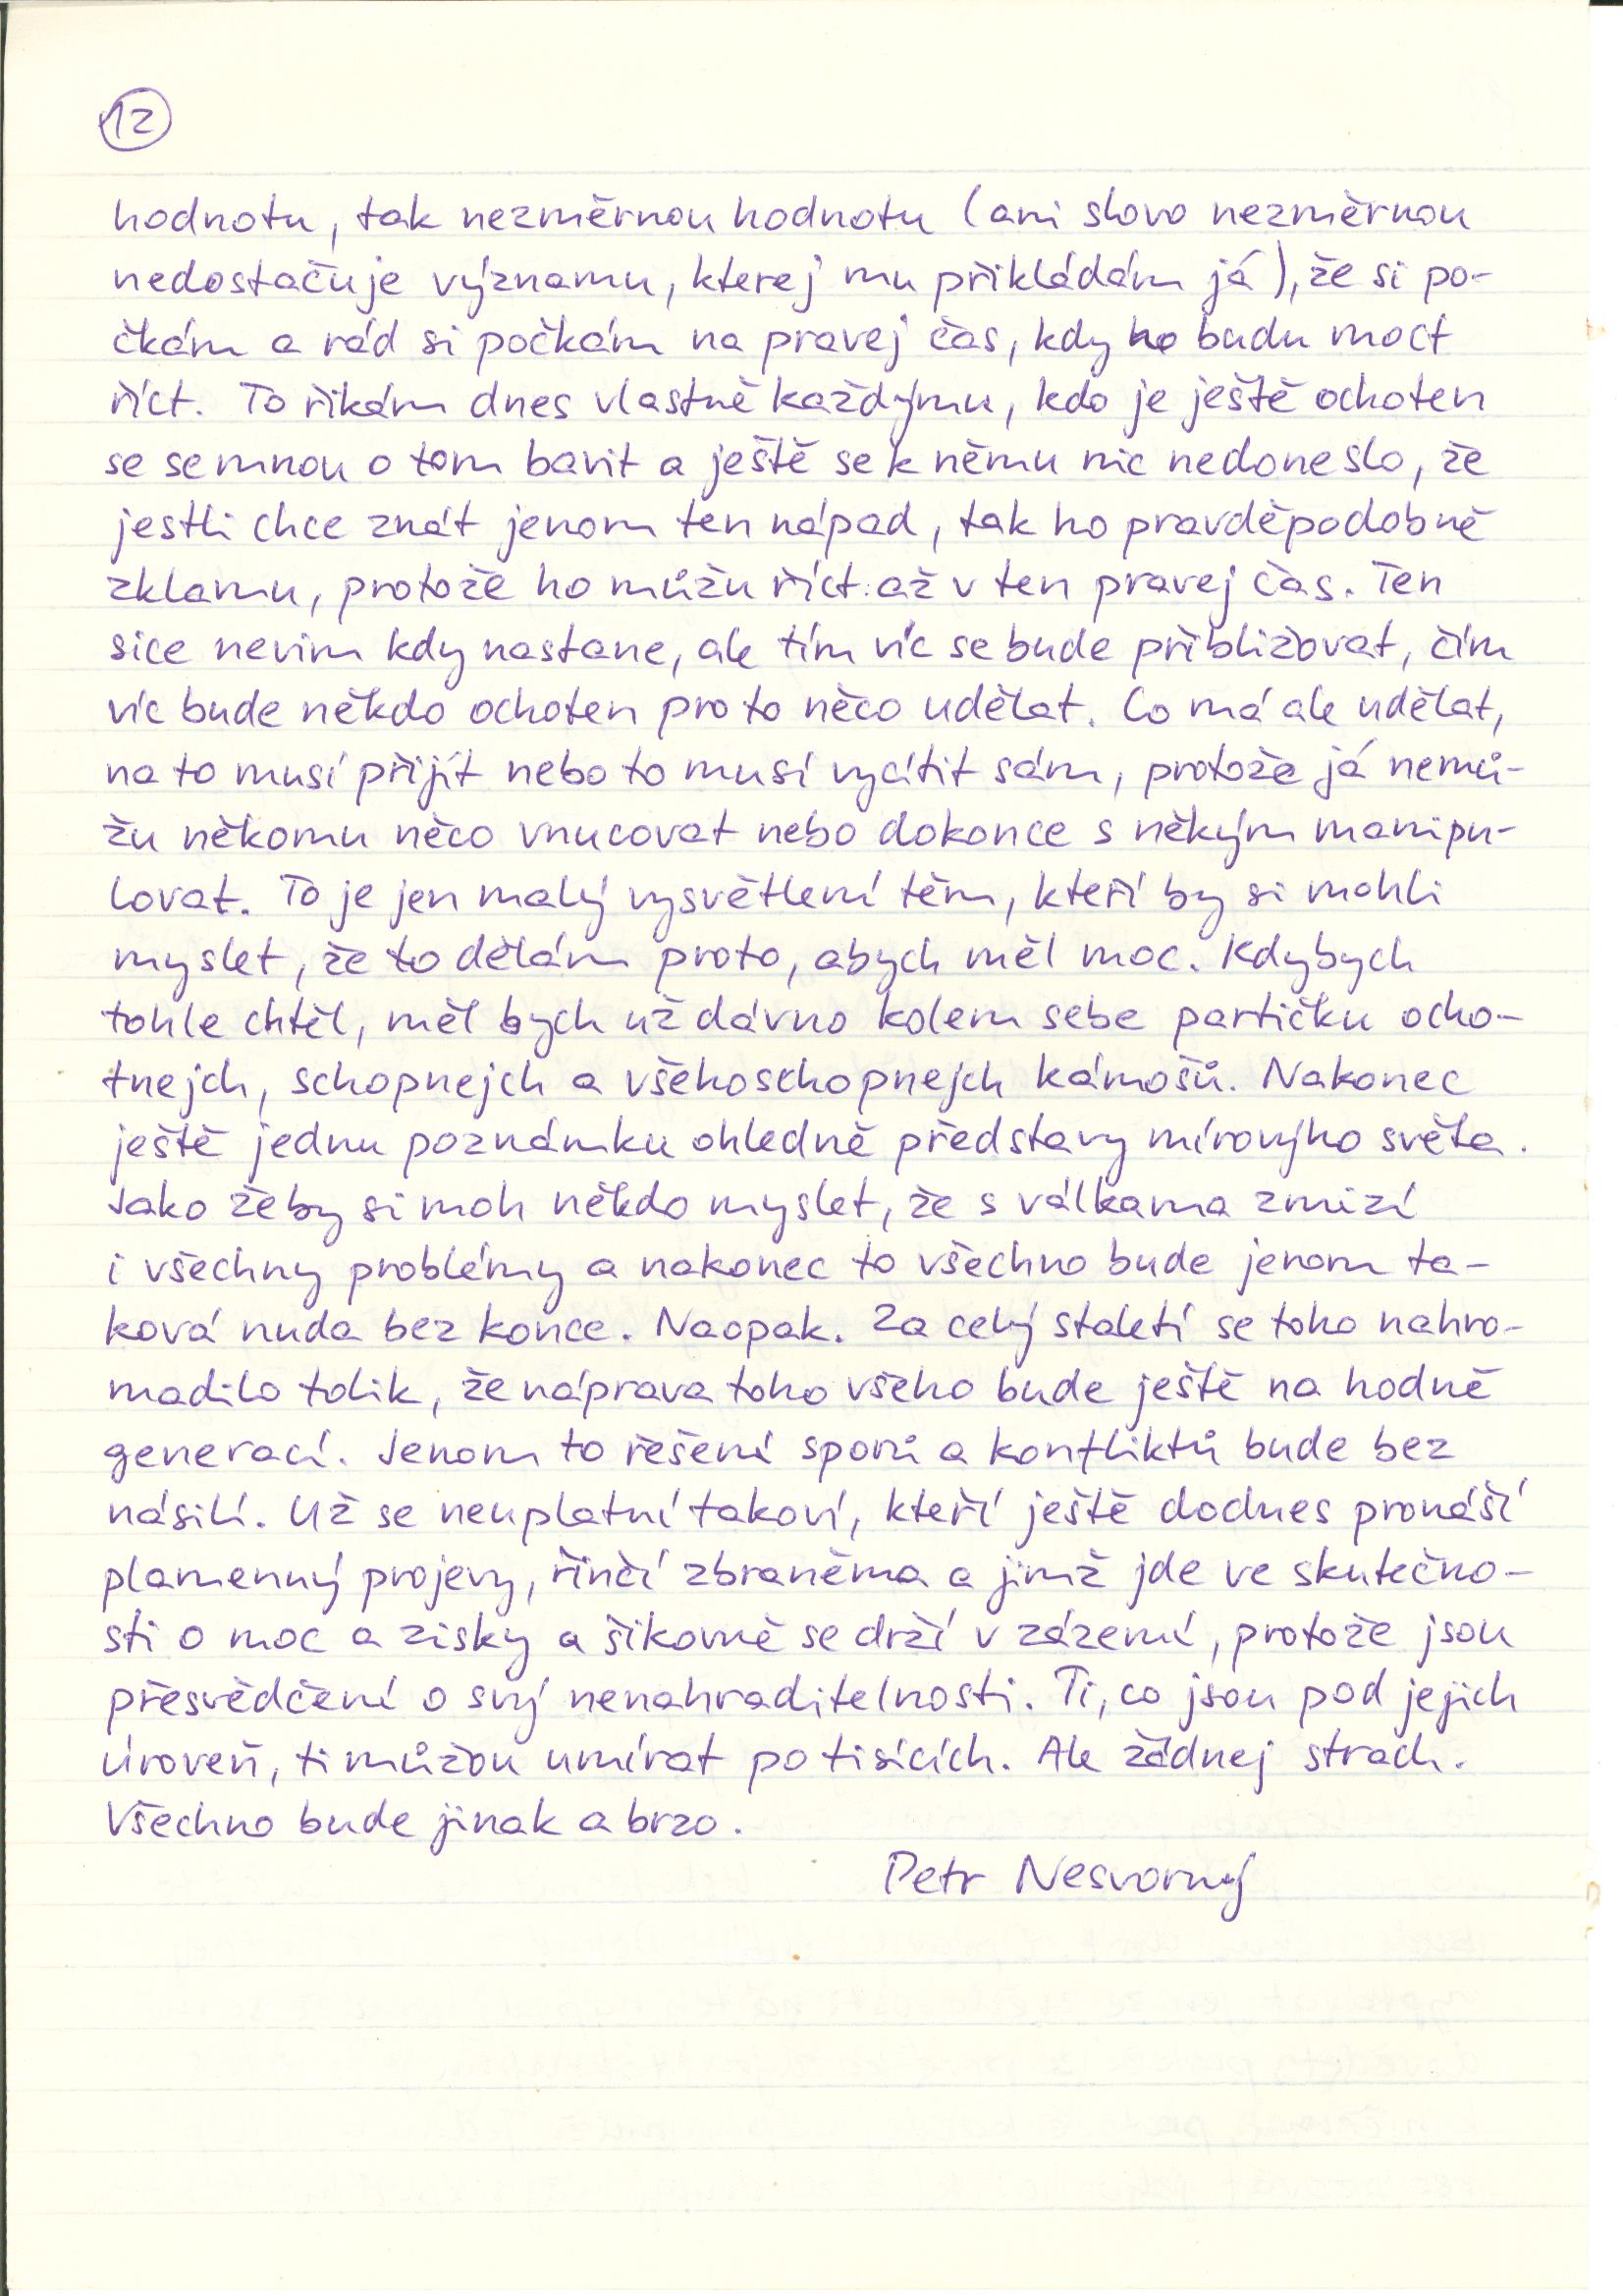 12
hodnotu, tak nezměrnou hodnotu (ani slovo nezměrnou
nedostačuje významu, kterej mu přikládám já), že si po-
čkám a rád si počkám na pravej čas, kdy ho budu moct
říct. To řikám dnes vlastně každýmu, kdo je ještě ochoten
se se mnou o tom bavit a ještě se k němu nic nedoneslo, že
jestli chce znát jenom ten nápad, tak ho pravděpodobně
zklamu, protože ho můžu říct až v ten pravej čas. Ten
sice nevim kdy nastane, ale tím víc se bude přibližovat, čím
víc bude někdo ochoten pro to něco udělat. Co má ale udělat,
na to musí přijít nebo to musí vycítit sám, protože já nemů-
žu někomu něco vnucovat nebo dokonce s někým manipu-
lovat. To je jen malý vysvětlení těm, kteří by si mohli
myslet, že to dělám proto, abych měl moc. Kdybych
tohle chtěl, měl bych už dávno kolem sebe partičku ocho-
tnejch, schopnejch a všehoschopnejch kámošů. Nakonec
ještě jednu poznámku ohledně představy mírovýho světa.
Jako žeby si moh někdo myslet, že s válkama zmizí
i všechny problémy a nakonec to všechno bude jenom ta-
ková nuda bez konce. Naopak. Za celý staletí se toho nahro-
madilo tolik, že náprava toho všeho bude ještě na hodně
generací. Jenom to řešení sporů a konfliktů bude bez
násilí. Už se neuplatní takoví, kteří ještě dodnes pronáší
plamenný projevy, řinčí zbraněma a jimž jde ve skutečno-
sti o moc a zisky a šikovně se drží v zázemí, protože jsou
přesvědčení o svý nenahraditelnosti. Ti, co jsou pod jejich
úroveň, ti můžou umírat po tisících. Ale žádnej strach.
Všechno bude jinak a brzo.
Petr Nesvornej